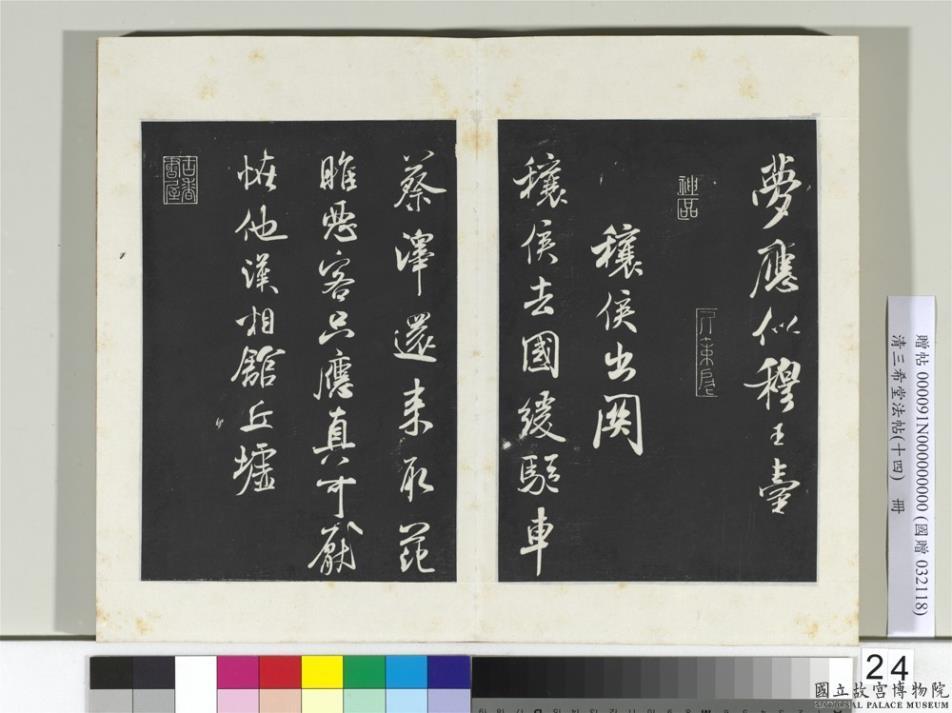 夢應似穆王臺
神品
穰侯出関
穰侯去國緩驅車
蔡澤還来取范
睢惡客只應真可厭
恠他漢相館丘墟
古香書屋
贈帖 000091N000000000 (國贈 032118)
清三希堂法帖(十四) 冊
24
國立故宮博物院
NATIONAL PALACE MUSEUM